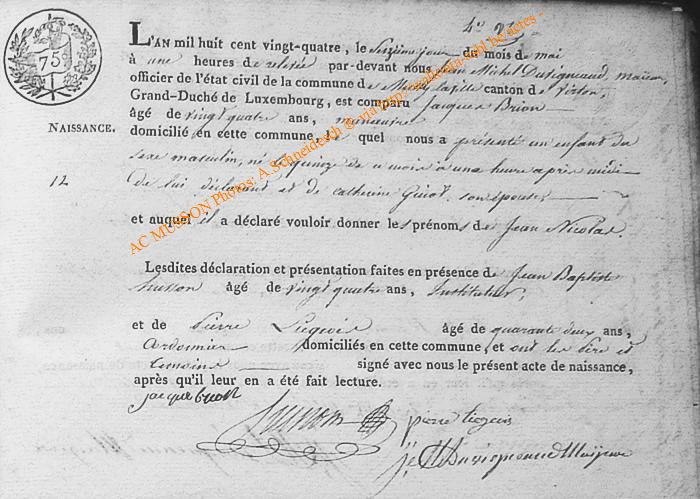 75
L'AN mil huit cent vingt-quatre, le Seizieme jour du mois de mai
à une heures de relevée par-devant nous Jean Michel Duvigneaud, maieur,
officier de l'état civil de la commune de Mussy la ville canton de Virton,
Grand-Duché de Luxembourg, est comparu Jacques Brion
âgé de vingt quatre ans, manœuvre
NAISSANCE.
domicilié en cette commune, le quel nous a présenté un enfant du
sexe masculin, né le quinze de ce mois à une heure après midi
12
de lui déclarant et de catherine Guiot, son épouse
et auquel il a déclaré vouloir donner les prénoms de Jean Nicolas.
Lesdites déclaration et présentation faites en présence de Jean Baptiste
husson âgé de vingt quatre ans, Instituteur,
et de Pierre Liegeois âgé de quarante deux ans,
domiciliés en cette commune, et ont les père et
temoins signé avec nous le présent acte de naissance,
après qu'il leur en a été fait lecture.
pierre liegeois
AC MUSSON Photos: A.Schneidesch © via http://